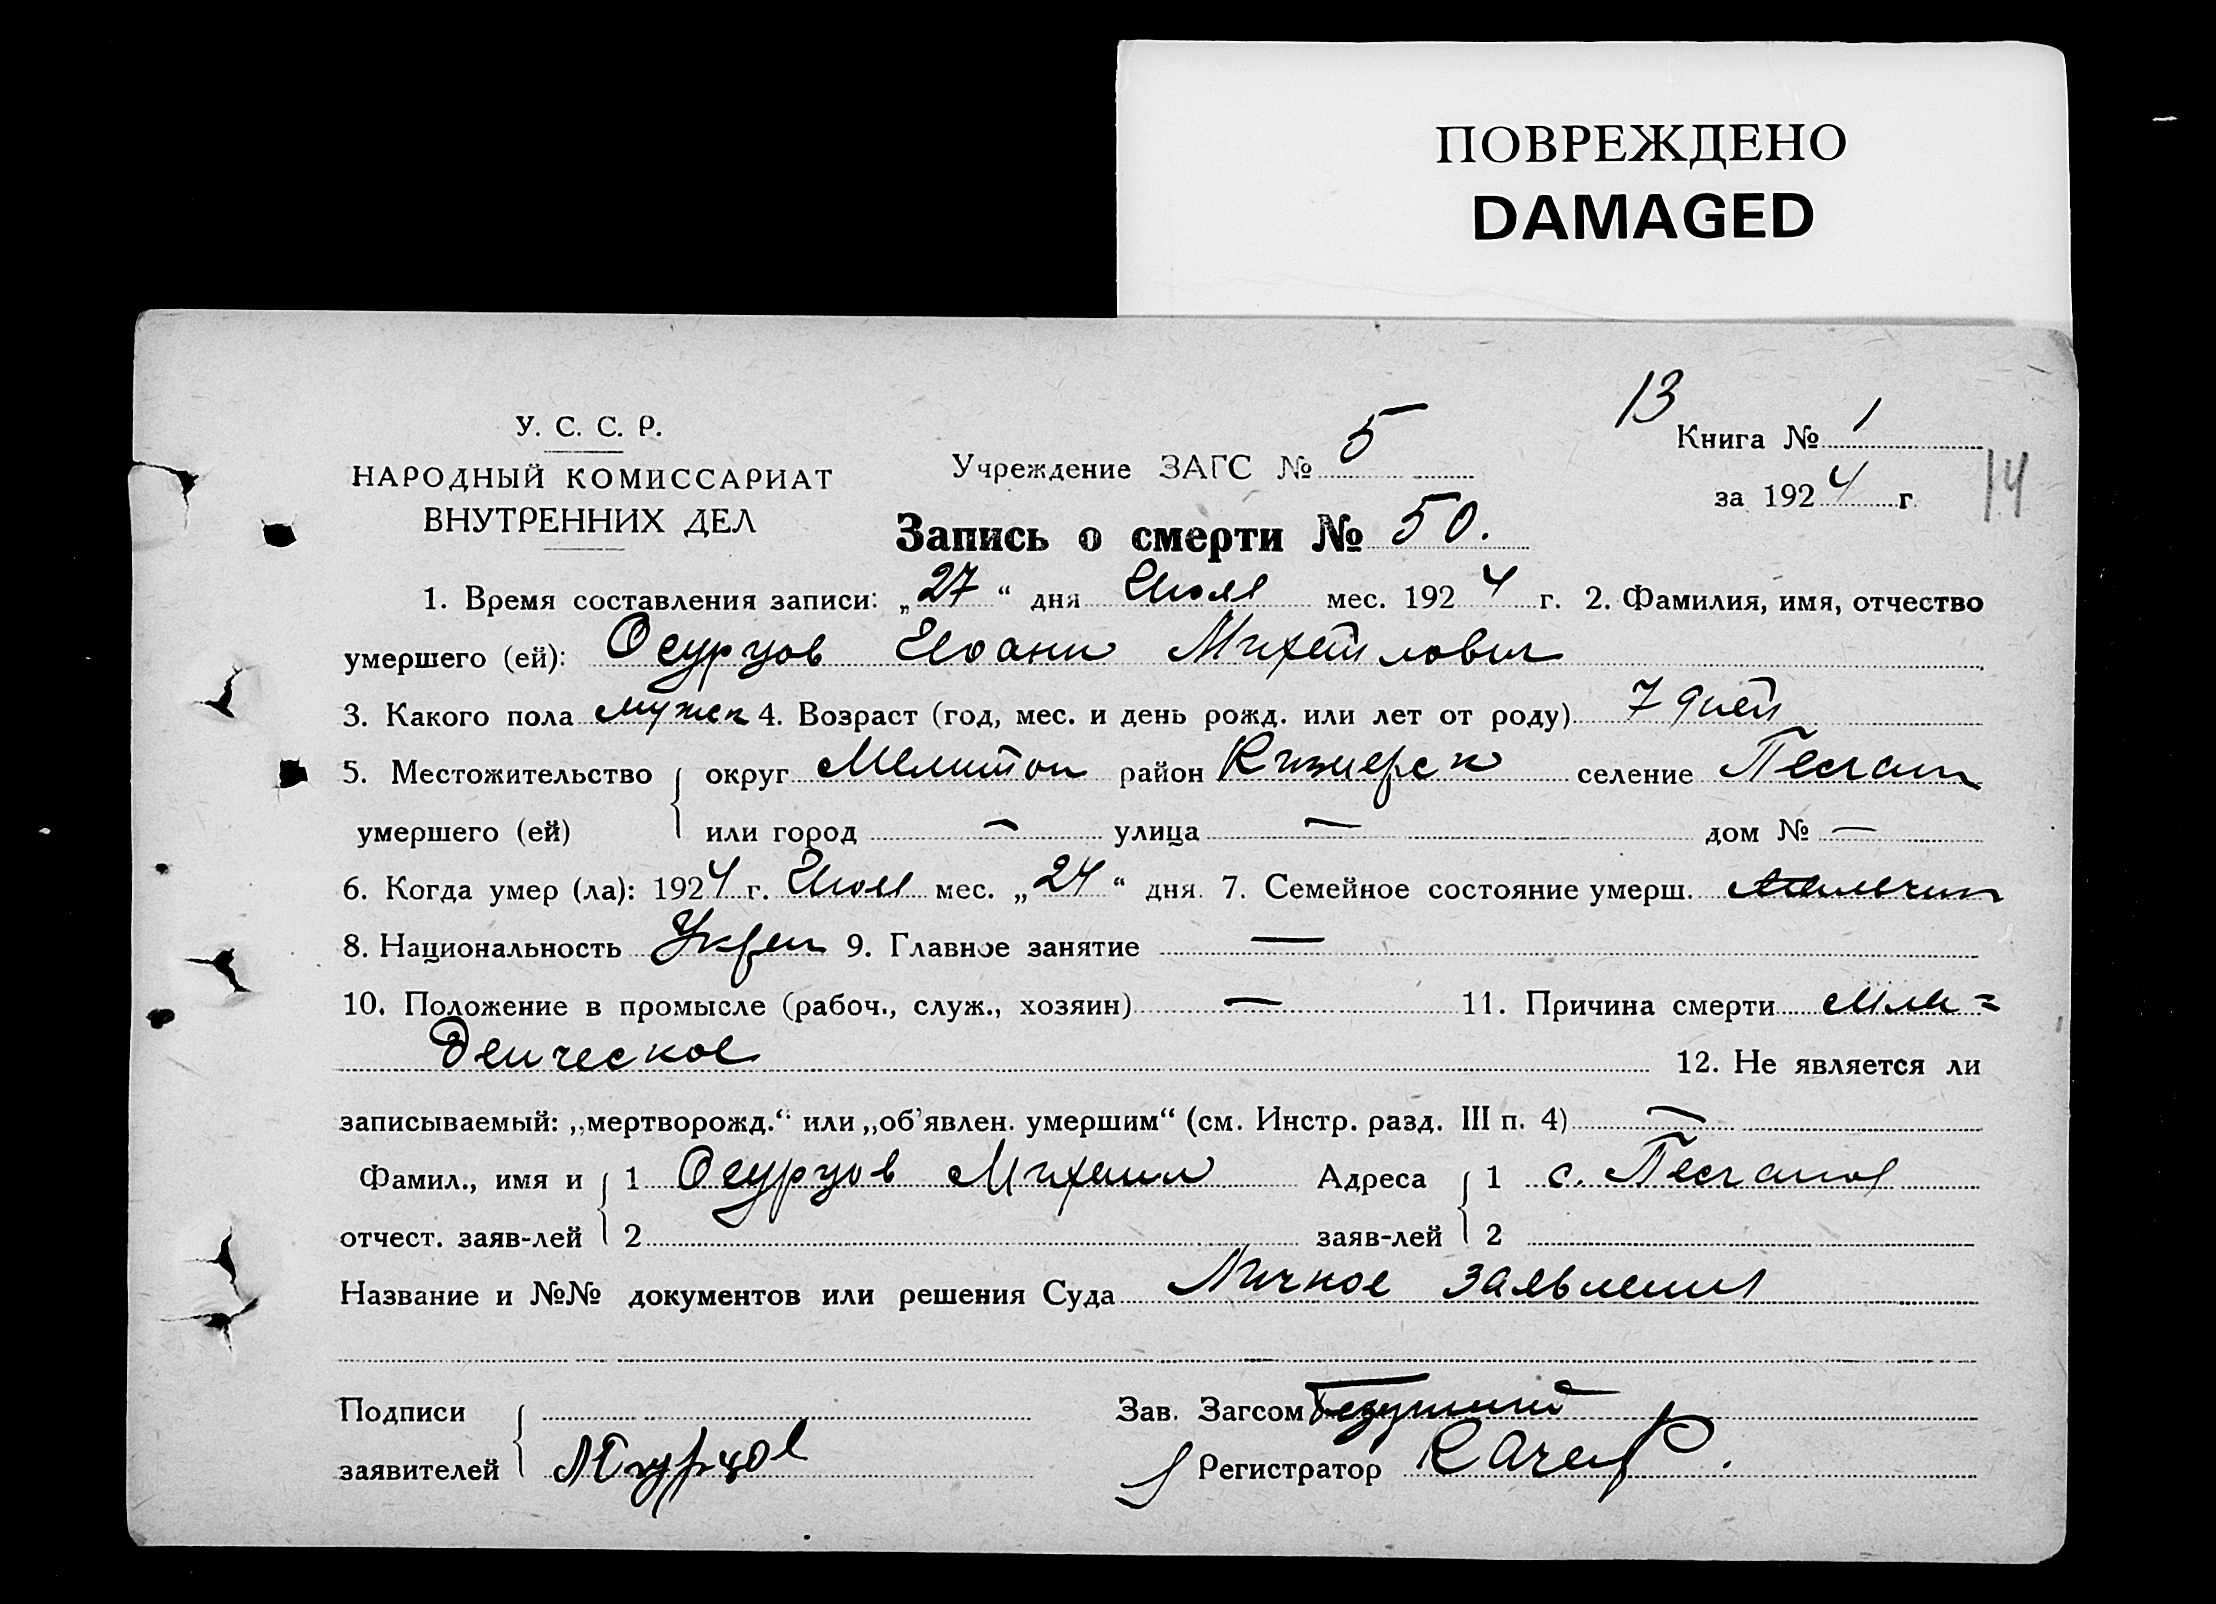 ПОВРЕЖДЕНО
DAMAGED
13
У. С. С. Р.
НАРОДНЫЙ КОМИССАРИАТ
ВНУТРЕННИХ ДЕЛ
Учреждение ЗАГС № 5
Книга № 1
за 1924 г.
14
Запись о смерти № 50.
1. Время составления записи: „27“ дня Июля мес. 1924 г. 2. Фамилия, имя, отчество
умершего (ей): Осурцов Иоанн Михайлович
3. Какого пола мужск 4. Возраст (год, мес. и день рожд. или лет от роду) 7 дней
5. Местожительство округ Мелитоп район селение Песчан
умершего (ей) или город — улица — дом № —
6. Когда умер (ла): 1924 г. Июля мес. „24“ дня. 7. Семейное состояние умерш.
8. Национальность Украи 9. Главное занятие —
10. Положение в промысле (рабоч., служ., хозяин) — 11. Причина смерти мла=
денческое 12. Не является ли
записываемый: „мертворожд.“ или „об'явлен. умершим“ (см. Инстр. разд. III п. 4) —
Фамил., имя и 1 Осурцов Михаил Адреса 1 с. Песчаное
отчест. заяв-лей 2 заяв-лей 2
Название и №№ документов или решения Суда Личное заявления
Подписи Зав. Загсом
заявителей Регистратор